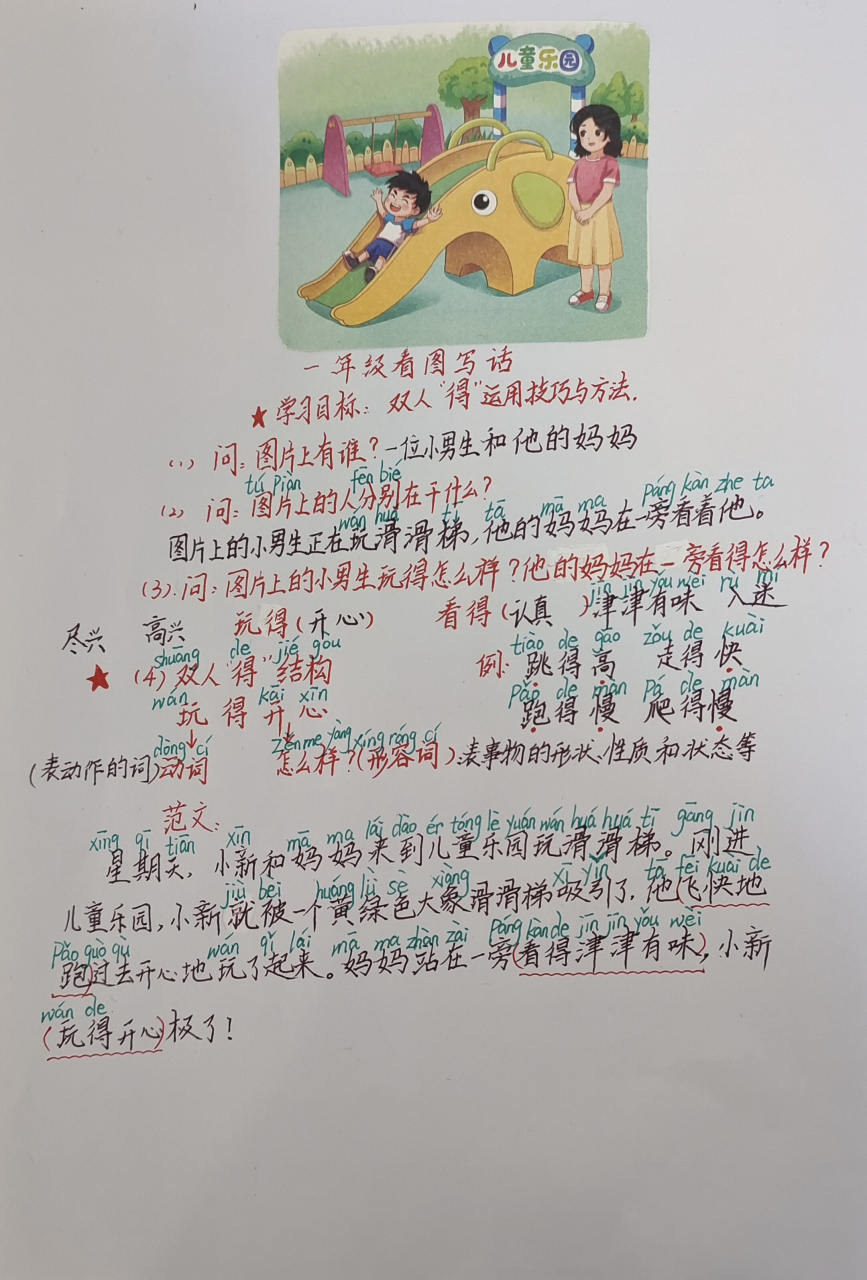 儿童乐园
一年级看图写话
★学习目标：双人“得”运用技巧与方法.
(1) 问：图片上有谁？一位小男生和他的妈妈
tú piàn fēn bié
(2) 问：图片上的人分别在干什么？
wán huá tī tā mā ma páng kàn zhe ta
图片上的小男生正在玩滑滑梯，他的妈妈在一旁看着他。
(3).问：图片上的小男生玩得怎么样？他的妈妈在一旁看得怎么样？
jīn jīn yǒu wèi rù mí
尽兴 高兴 玩得(开心) 看得(认真 )津津有味 入迷
shuāng de jié gòu tiào de gāo zǒu de kuài
★ (4) 双人“得”结构 例: 跳得高 走得快
wán kāi xīn pǎo de màn pá de màn
玩得开心 跑得慢 爬得慢
dòng cí zěn me yàng xíng róng cí
(表动作的词)动词 怎么样？(形容词).表事物的形状、性质和状态等
范文：
xīng qī tiān xīn mā ma lái dào ér tóng lè yuán wán huá huá tī gāng jìn
星期天，小新和妈妈来到儿童乐园玩滑滑梯。刚进
jiù bèi huáng lǜ sè xiàng xī yǐn tā fēi kuài de
儿童乐园，小新就被一个黄绿色大象滑滑梯吸引了，他(飞快地
pǎo guò qù wán qǐ lái mā ma zhàn zài páng kàn de jīn jīn yǒu wèi
跑)过去开心地玩了起来。妈妈站在一旁(看得津津有味)，小新
wán de
(玩得开心)极了！